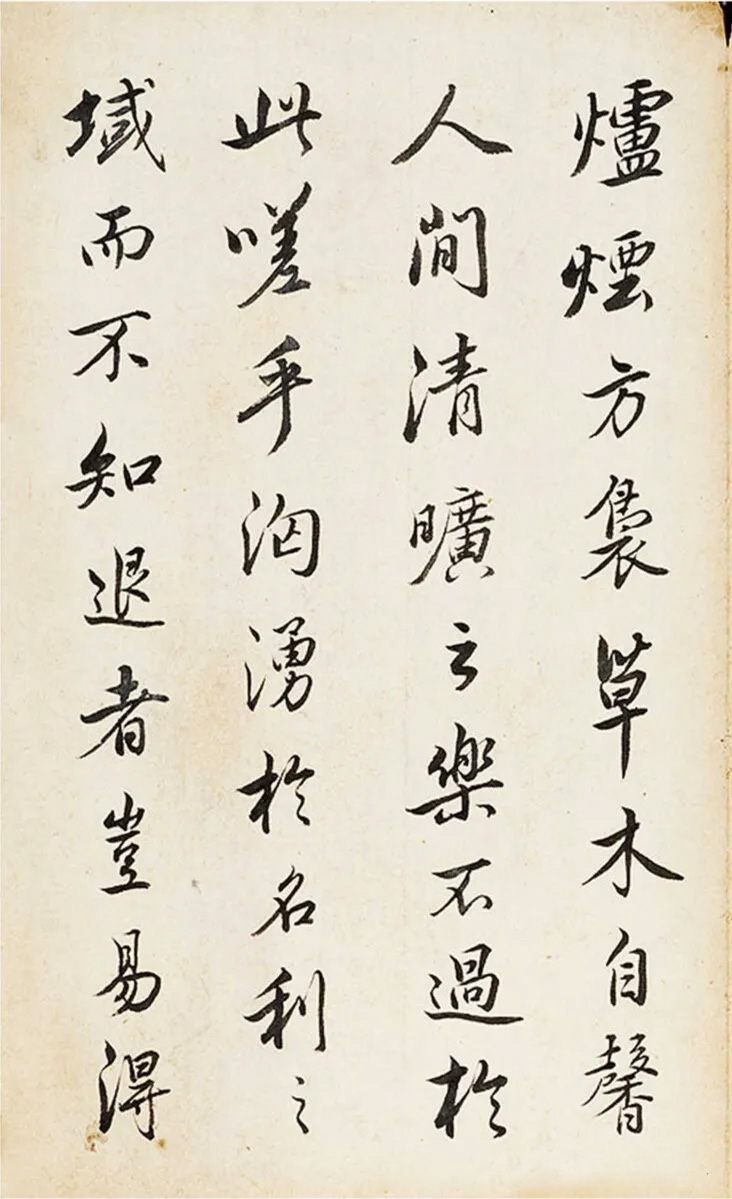 爐煙方裊草木自馨
人間清曠之樂不過於
此嗟乎洶湧於名利之
域而不知退者豈易得